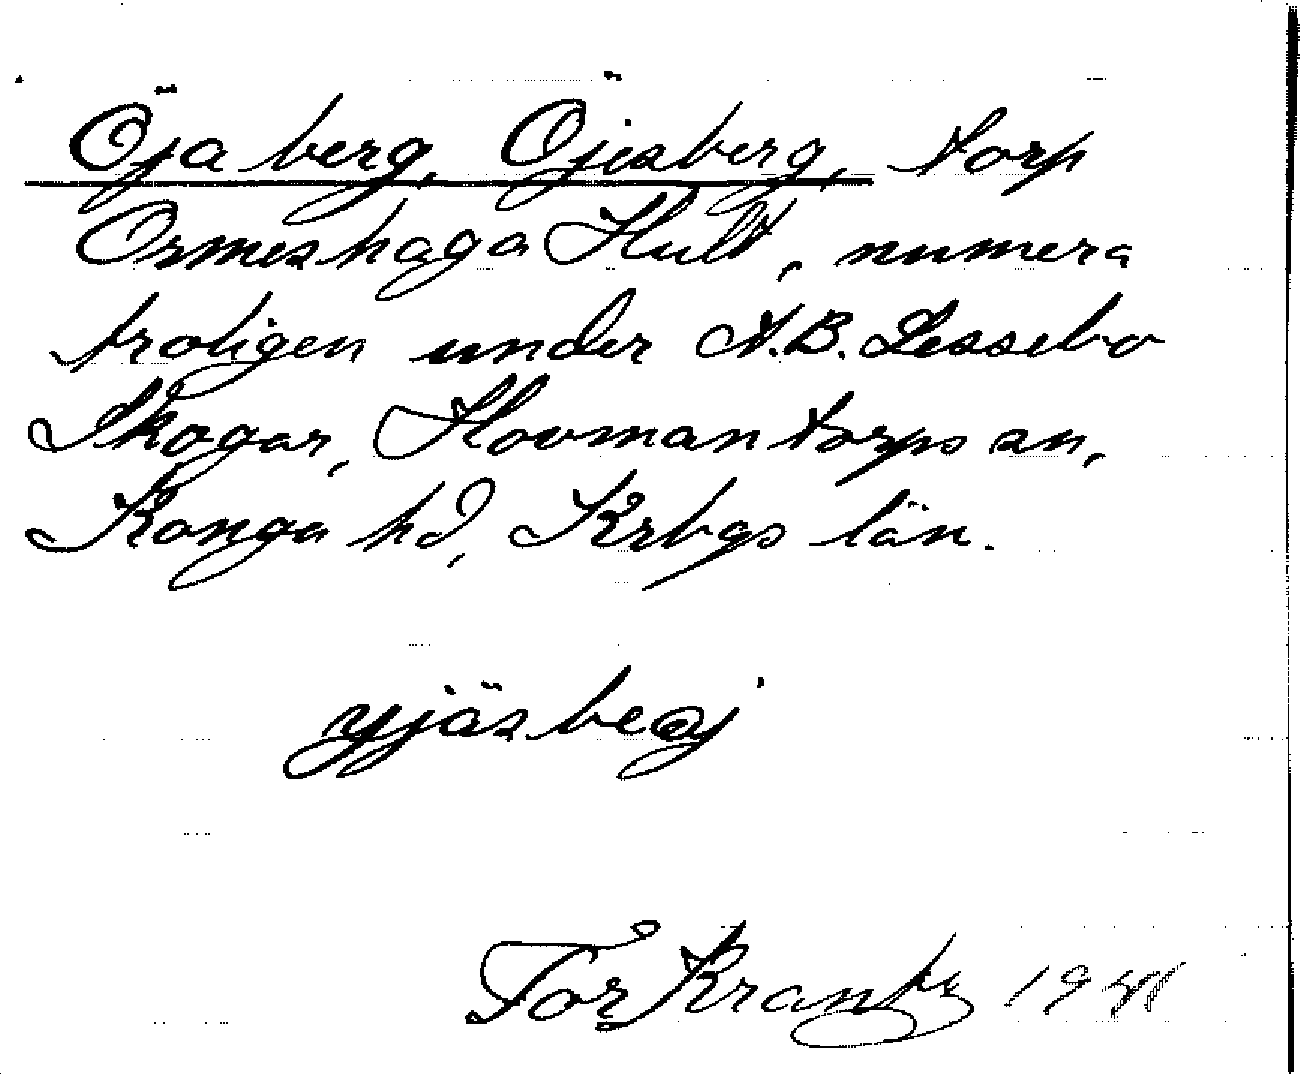 Öja berg, Öjesberg, torp
Ormeshaga Hult, numera
troligen under A.B. Lessebo
Skogar, Hovmantorps sn,
Konga hd, Krbgs län.
yjäsbeaj
Tor Krantz 1941